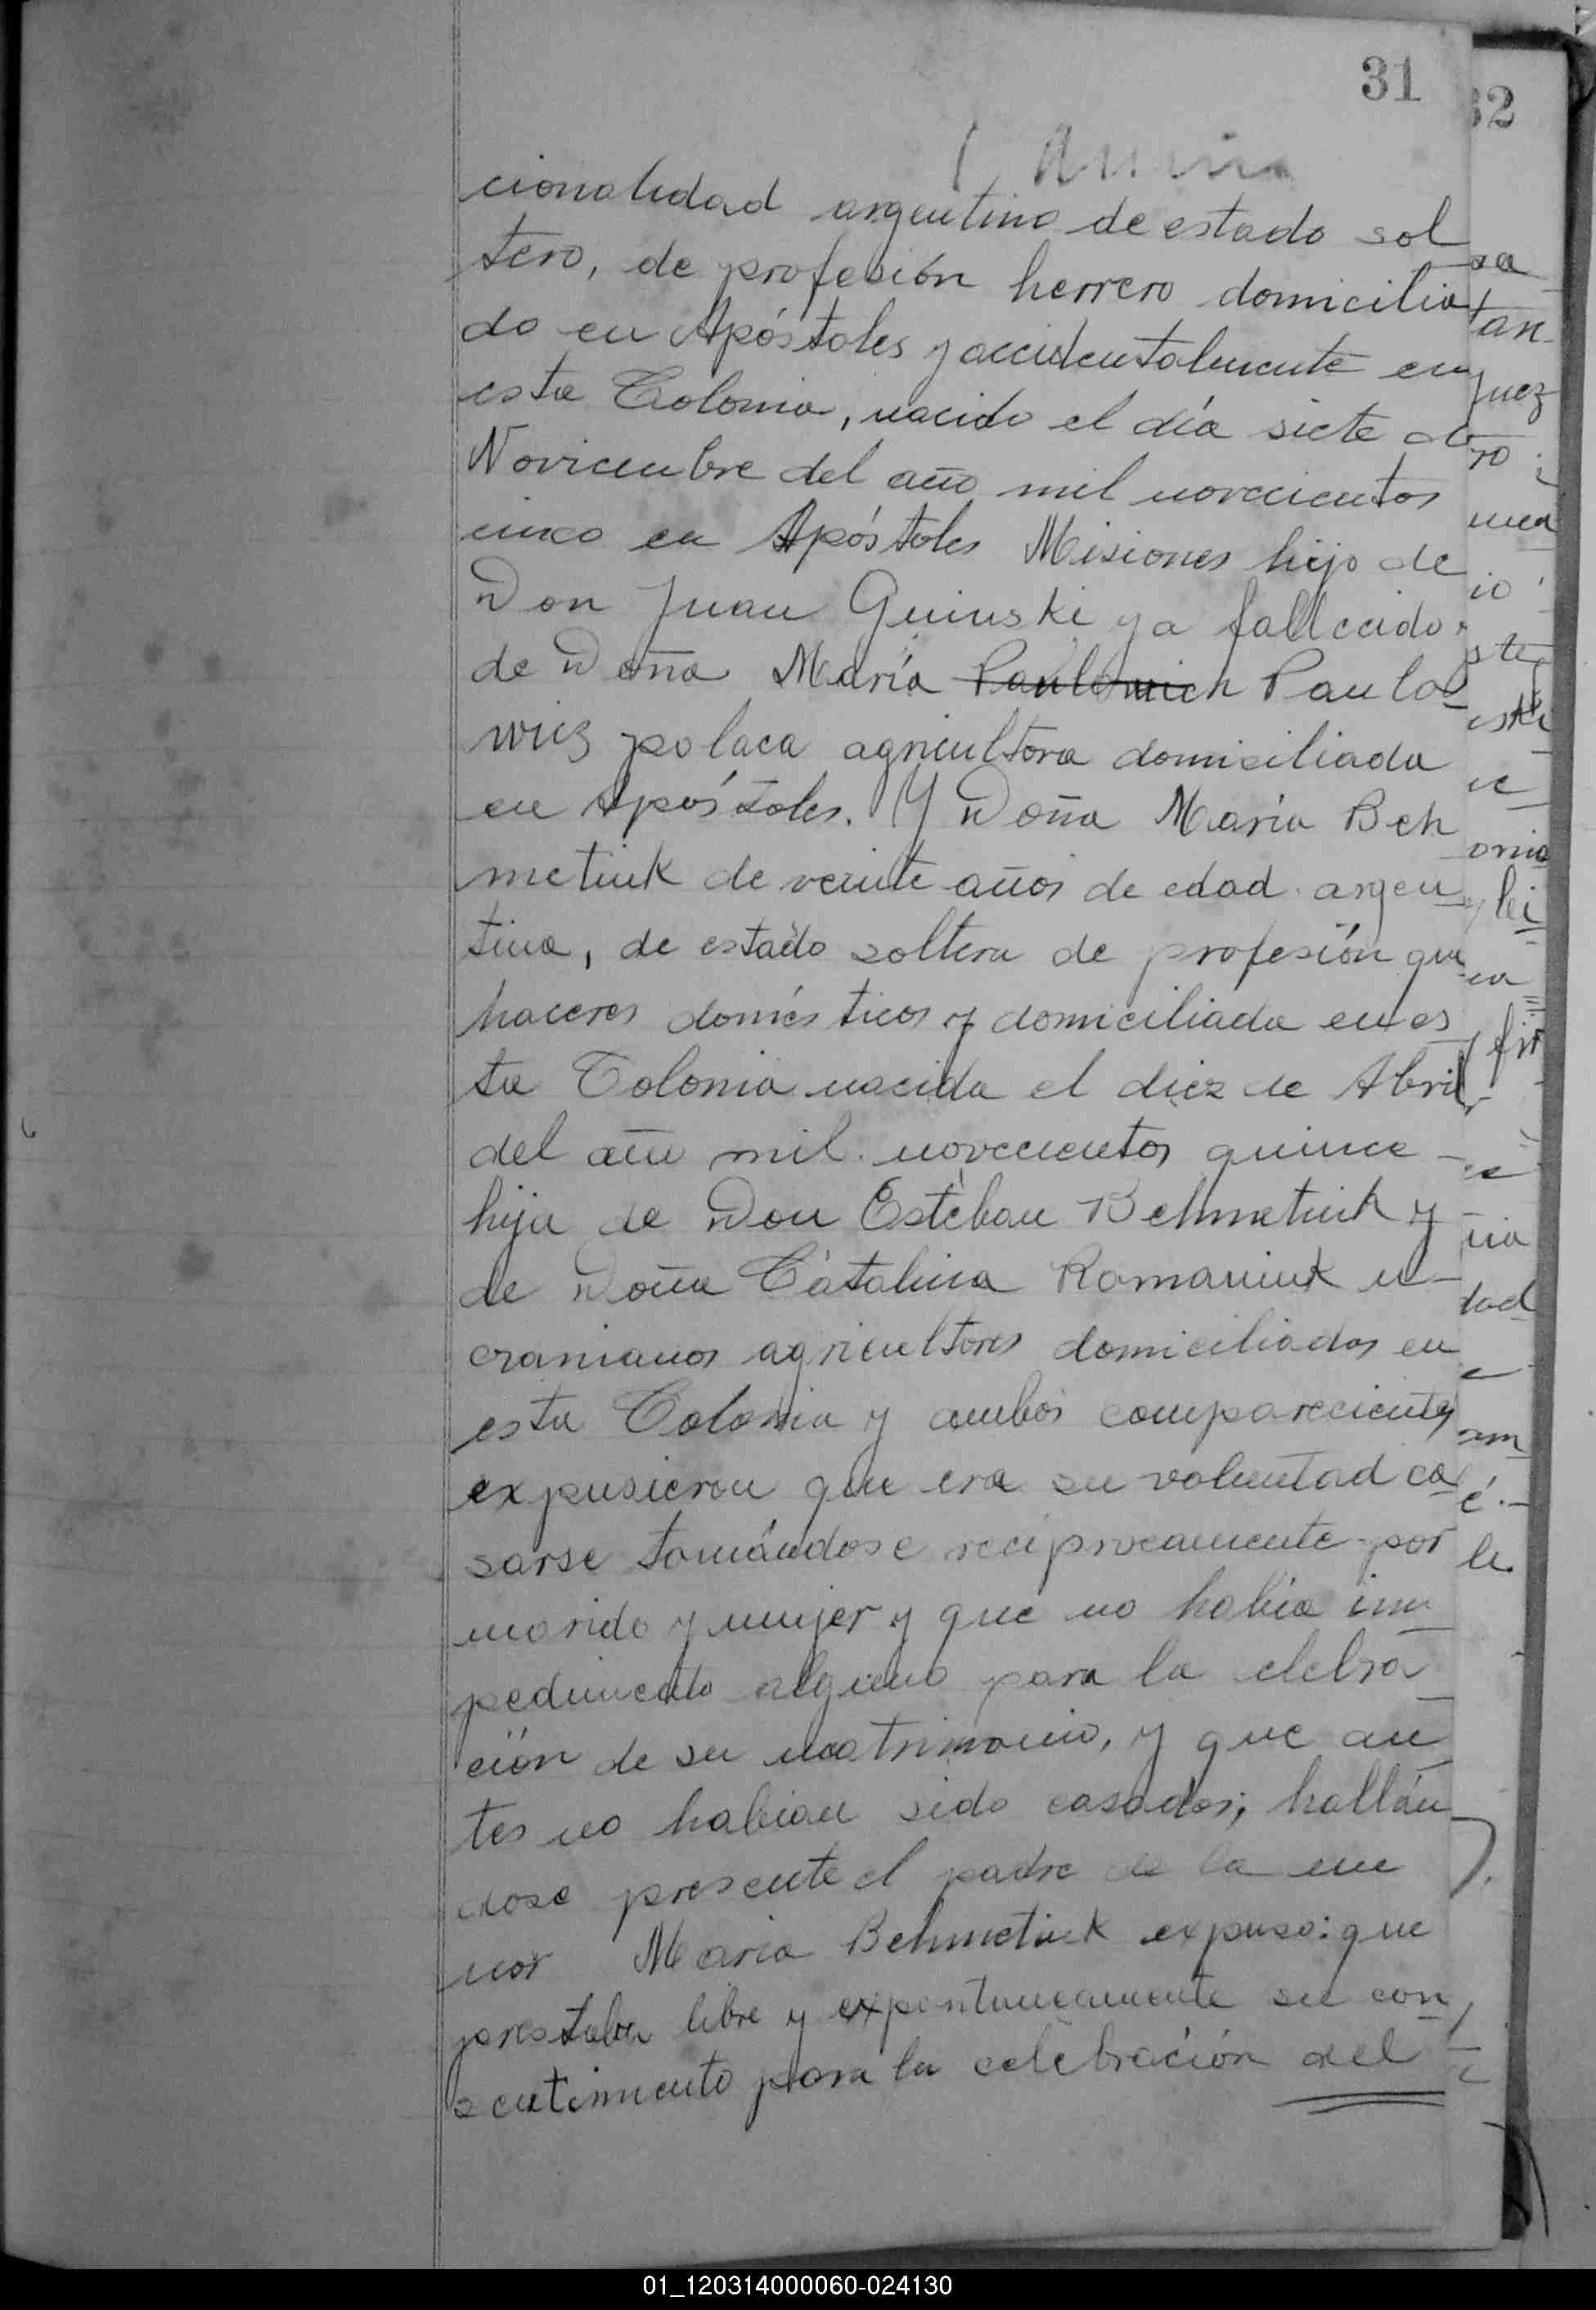 31
32
cionalidad argentino de estado sol
tero, de profesión herrero domicilia
do en Apóstoles y accidentalmente en
esta Colonia, nacido el día siete de
Noviembre del año mil novecientos
cinco en Apóstoles Misiones hijo de
Don Juan Guinski ya fallecido y
de Doña María Paulowich Paulo
wicz polaca agricultora domiciliada
en Apóstoles. Y Doña María Beh
metiuk de veinte años de edad argen
tina, de estado soltera de profesión que
haceres domésticos y domiciliada en es
ta Colonia nacida el diez de Abril
del año mil novecientos quince
hija de Don Estéban Behmetiuk y
de Doña Catalina Romaniuk u
cranianos agricultores domiciliados en
esta Colonia y ambos comparecientes
expusieron que era su voluntad ca
sarse tomándose reciprocamente por
marido y mujer y que no habia im
pedimento alguno para la celebra
ción de su matrimonio, y que an
tes no habian sido casados; hallán
dose presente el padre de la me
nor Maria Behmetiuk expuso: que
prestaba libre y expontaneamente su con
sentimiento para la celebración del
01_120314000060-024130